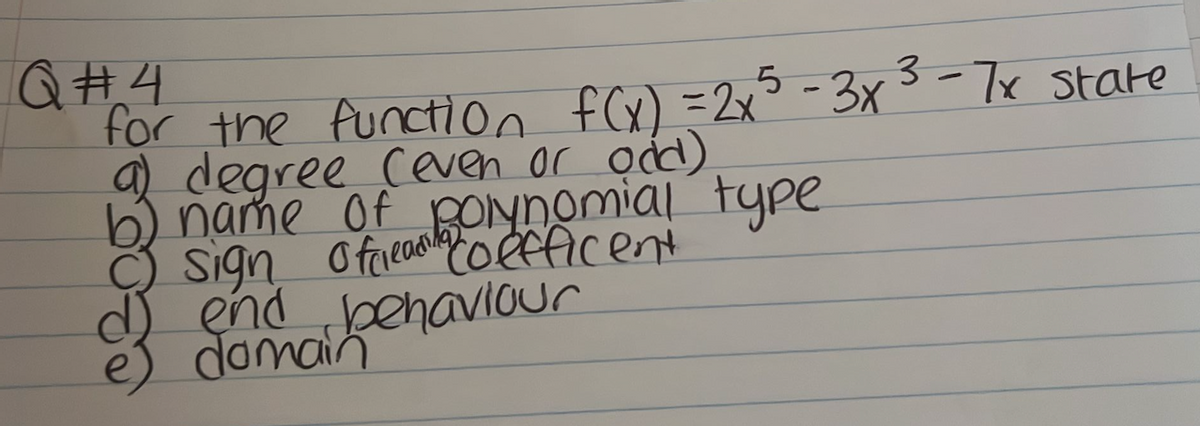 Q#4
for the function f(x) = 2x⁵ - 3x³ - 7x state
a) degree (even or odd)
b) name of polynomial type
c) sign of (leading) coefficent
d) end behaviour
e) domain